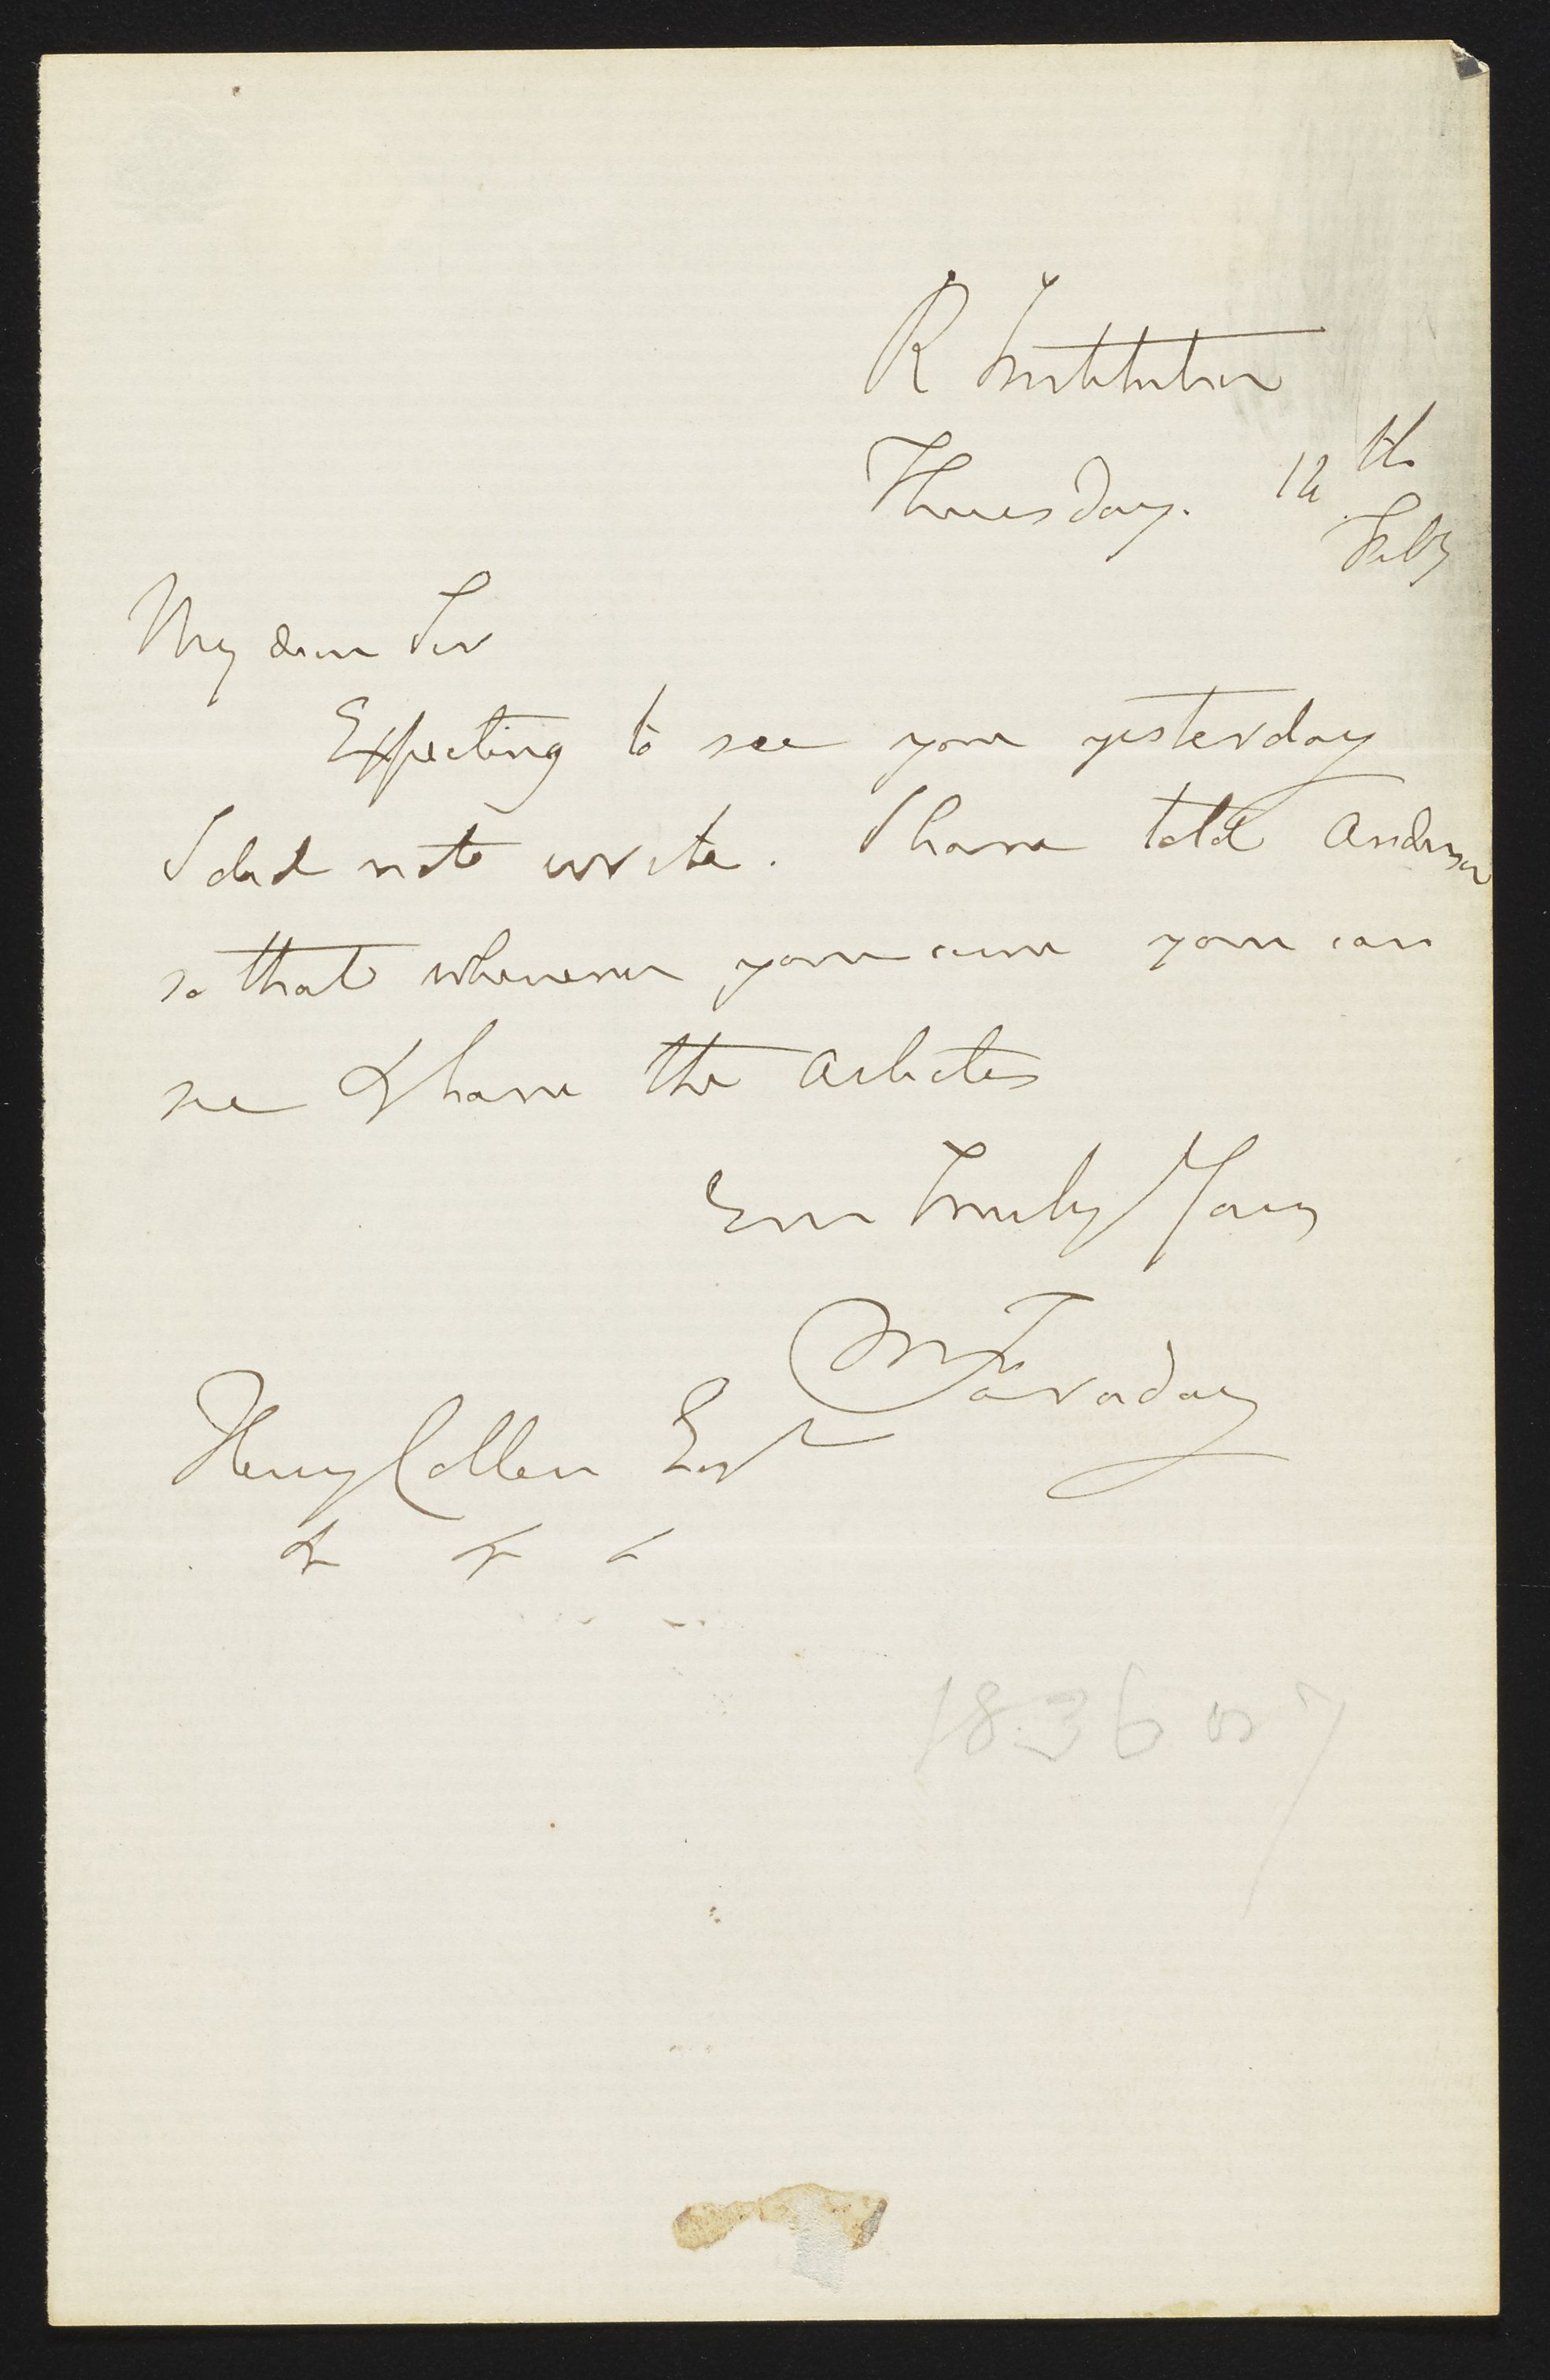 R Institution
Thursday. 12th
Feby
My dear Sir
Expecting to see you yesterday
I did not write. I have told Anderson
so that whenever you come you can
see & have the articles
Ever Truly Yours
M Faraday
Henry Collen Esq
& & &
1836 or 7